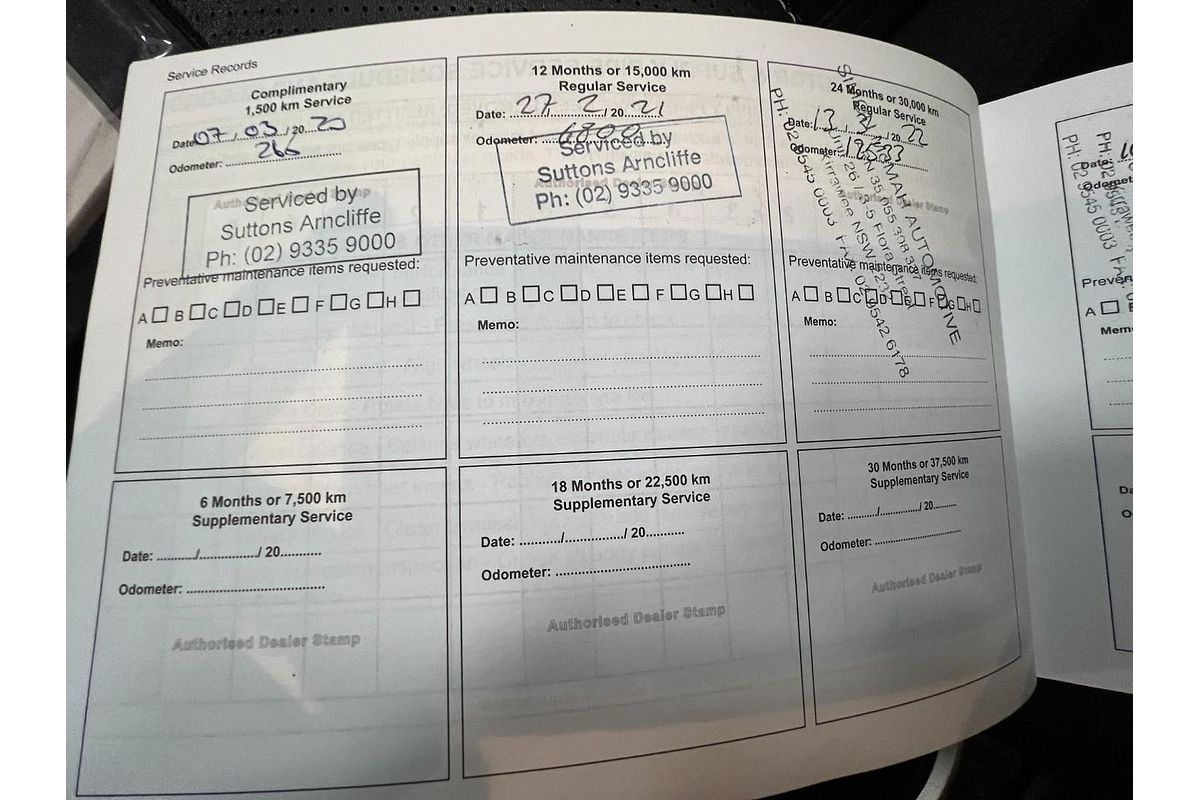 Service Records
Complimentary
1,500 km Service
Date: 07 / 03 / 20 20
Odometer: 266
Authorised Dealer Stamp
Serviced by
Suttons Arncliffe
Ph: (02) 9335 9000
Preventative maintenance items requested:
A B C D E F G H
Memo:
6 Months or 7,500 km
Supplementary Service
Date: ........../................/ 20...........
Odometer: ...................................
Authorised Dealer Stamp
12 Months or 15,000 km
Regular Service
Date: 27 / 2 / 20 21
Odometer: 6800
Authorised Dealer Stamp
Serviced by
Suttons Arncliffe
Ph: (02) 9335 9000
Preventative maintenance items requested:
A B C D E F G H
Memo:
18 Months or 22,500 km
Supplementary Service
Date: ........../................/ 20...........
Odometer: ...................................
Authorised Dealer Stamp
24 Months or 30,000 km
Regular Service
Date: 13 / 2 / 20 22
Odometer:
Authorised Dealer Stamp
AUTOMOTIVE
Flora Street
Kirrawee NSW
PH: 02 9545 0003 FAX: 02 9542 6178
Preventative maintenance items requested:
A B C D E F G H
Memo:
30 Months or 37,500 km
Supplementary Service
Date: ........../................/ 20...........
Odometer: ...................................
Authorised Dealer Stamp
Date:
Odomet
PH: 02 9545 0003 FA
Preven
A
Mem
Da
O